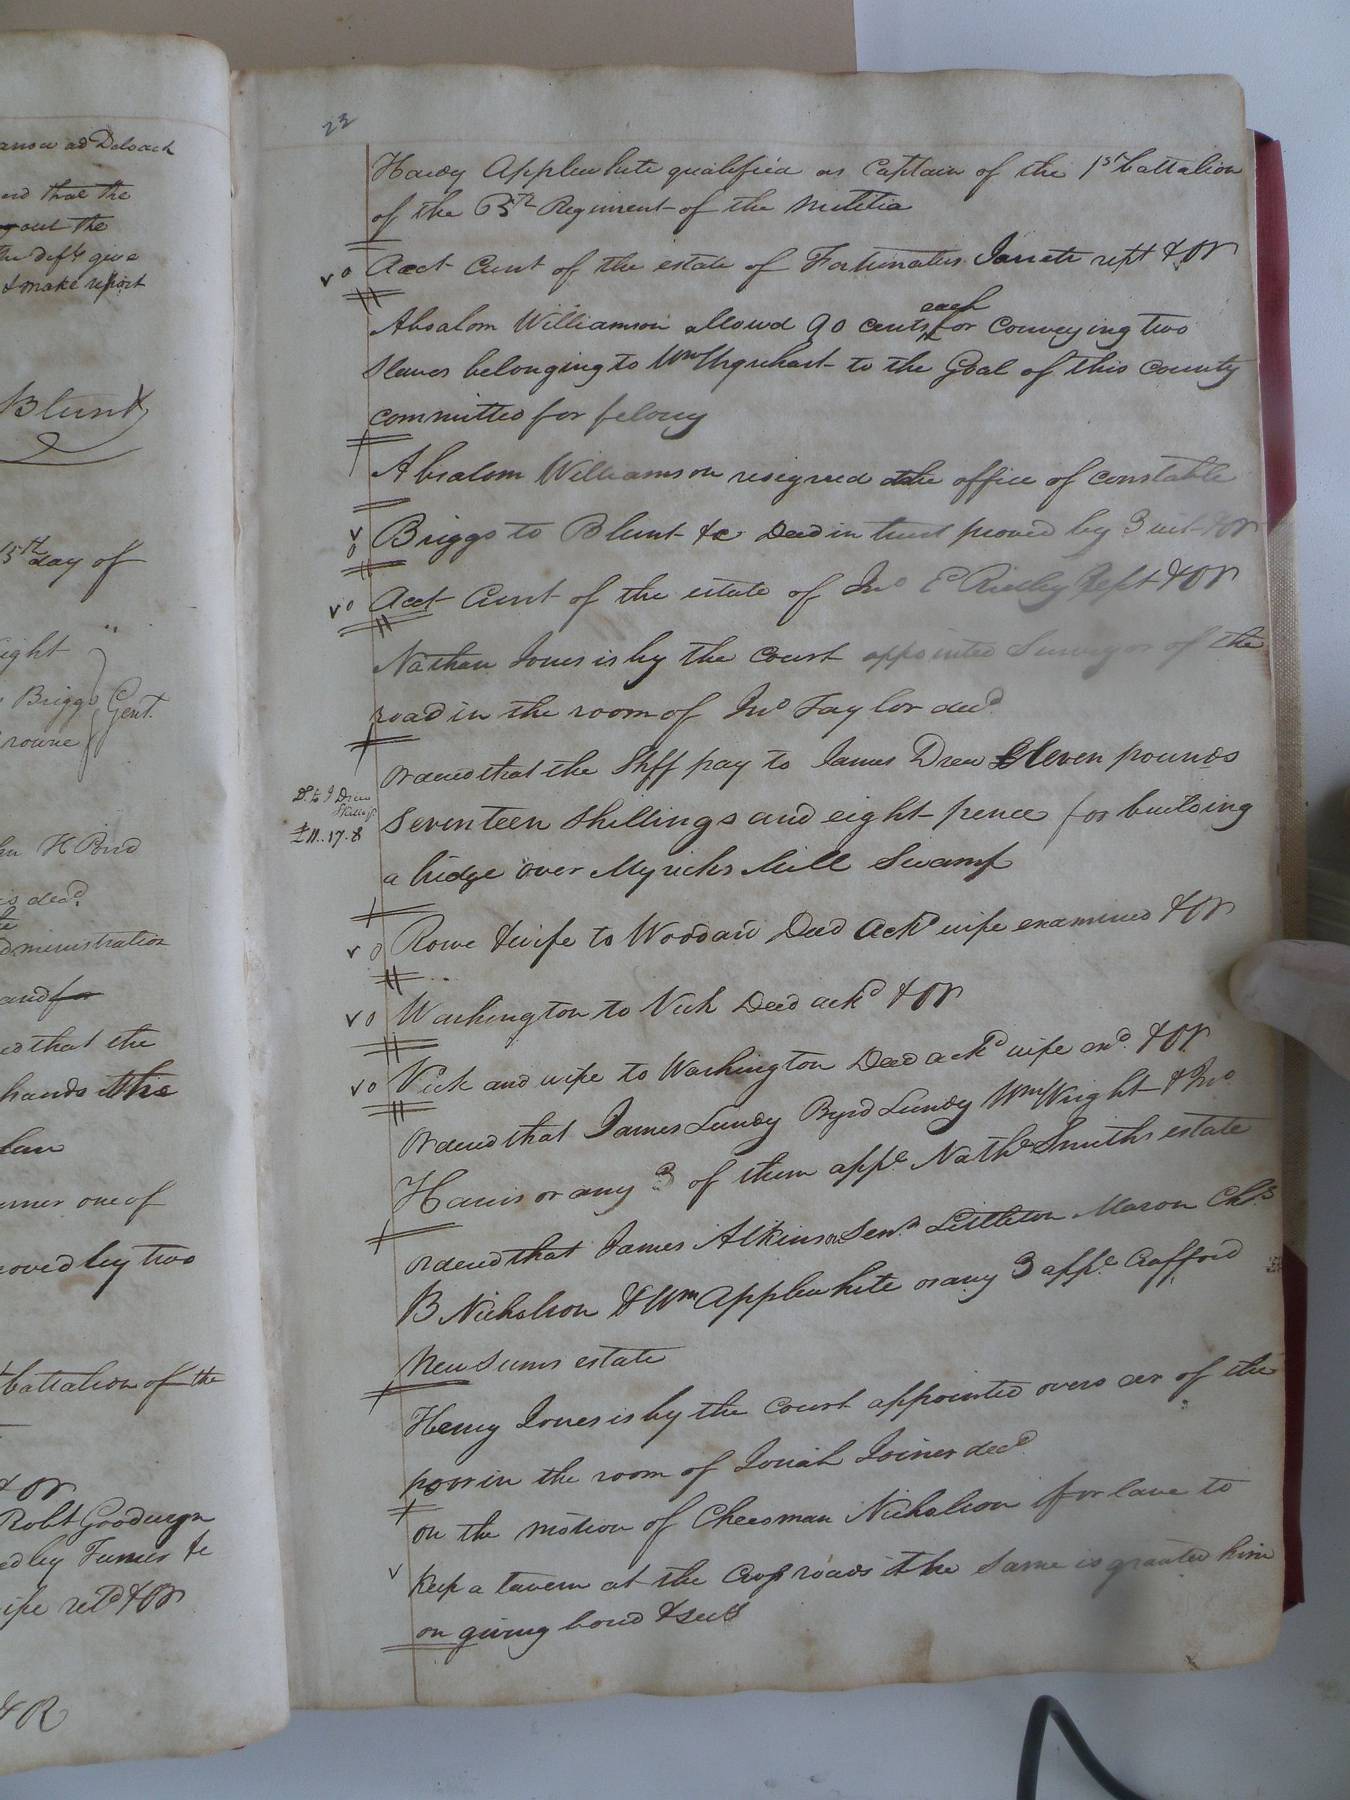 anson ad Deloach
and that the
out the
the Defts give
& make report
Blunt
15th day of
ight "
Briggs Gent.
rowne
hn H Bird
is decd.
dministration
and for
ed that the
hands the
urner one of
oved by two
battalion of the
& OR
Robt Goodwyn
ed by Turner &c
ife retd & OR
& R
23
Hardy Applewhite qualified as Captain of the 1st battalion
of the 65th Regiment of the militia
v o Acct Curt of the estate of Fortunatus Jarrett rept & OR
each
Absalom Williamson allowd 90 cents for conveying two
slaves belonging to Wm Urquhart to the Goal of this county
committed for felony
Absalom Williamson resigned the office of constable
v o Briggs to Blunt &c Deed in trust proved by 3 wit & OR
v o Acct Curt of the estate of Jno E Ridley Rept & OR
Nathan Jones is by the court appointed Surveyor of the
road in the room of Jno Taylor decd
ordered that the Shff pay to James Drew Eleven pounds
D. to J Drew
£11..17.8
Seventeen Shillings and eight pence for building
a bridge over Myricks Mill Swamp
v o Rowe & wife to Woodard Deed Ackd wife examined & OR
v o Washington to Vick Deed ackd & OR
v o Vick and wife to Washington Deed ackd wife exd. & OR
ordered that James Lundy Byrd Lundy Wm Wright & Jno
Harris or any 3 of them appe Nathl Smiths estate
ordered that James Atkinson Senr. Littleton Mason Chs.
B Nicholson & Wm Applewhite or any 3 appe. Crafford
Newsums estate
Henry Jones is by the court appointed overseer of the
poor in the room of Josiah Joiner decd
on the motion of Cheesman Nicholson for lave to
v keep a tavern at the Cross roads the same is granted him
on giving bond & secy